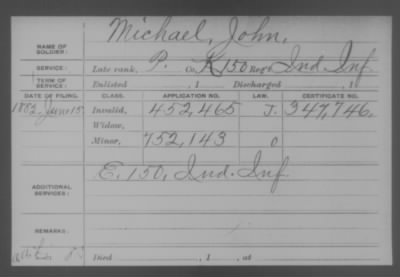 NAME OF SOLDIER: Michael, John.
SERVICE: Late rank, P. Co. K, 150 Reg't Ind. Inf.
TERM OF SERVICE: Enlisted , 1 Discharged , 1
DATE OF FILING. CLASS. APPLICATION NO. LAW. CERTIFICATE NO.
1882, June 15 Invalid, 452,465 J. 347,746.
Widow,
Minor, 752,143 O
ADDITIONAL SERVICES: E. 150, Ind. Inf.
REMARKS:
Died , 1 , at